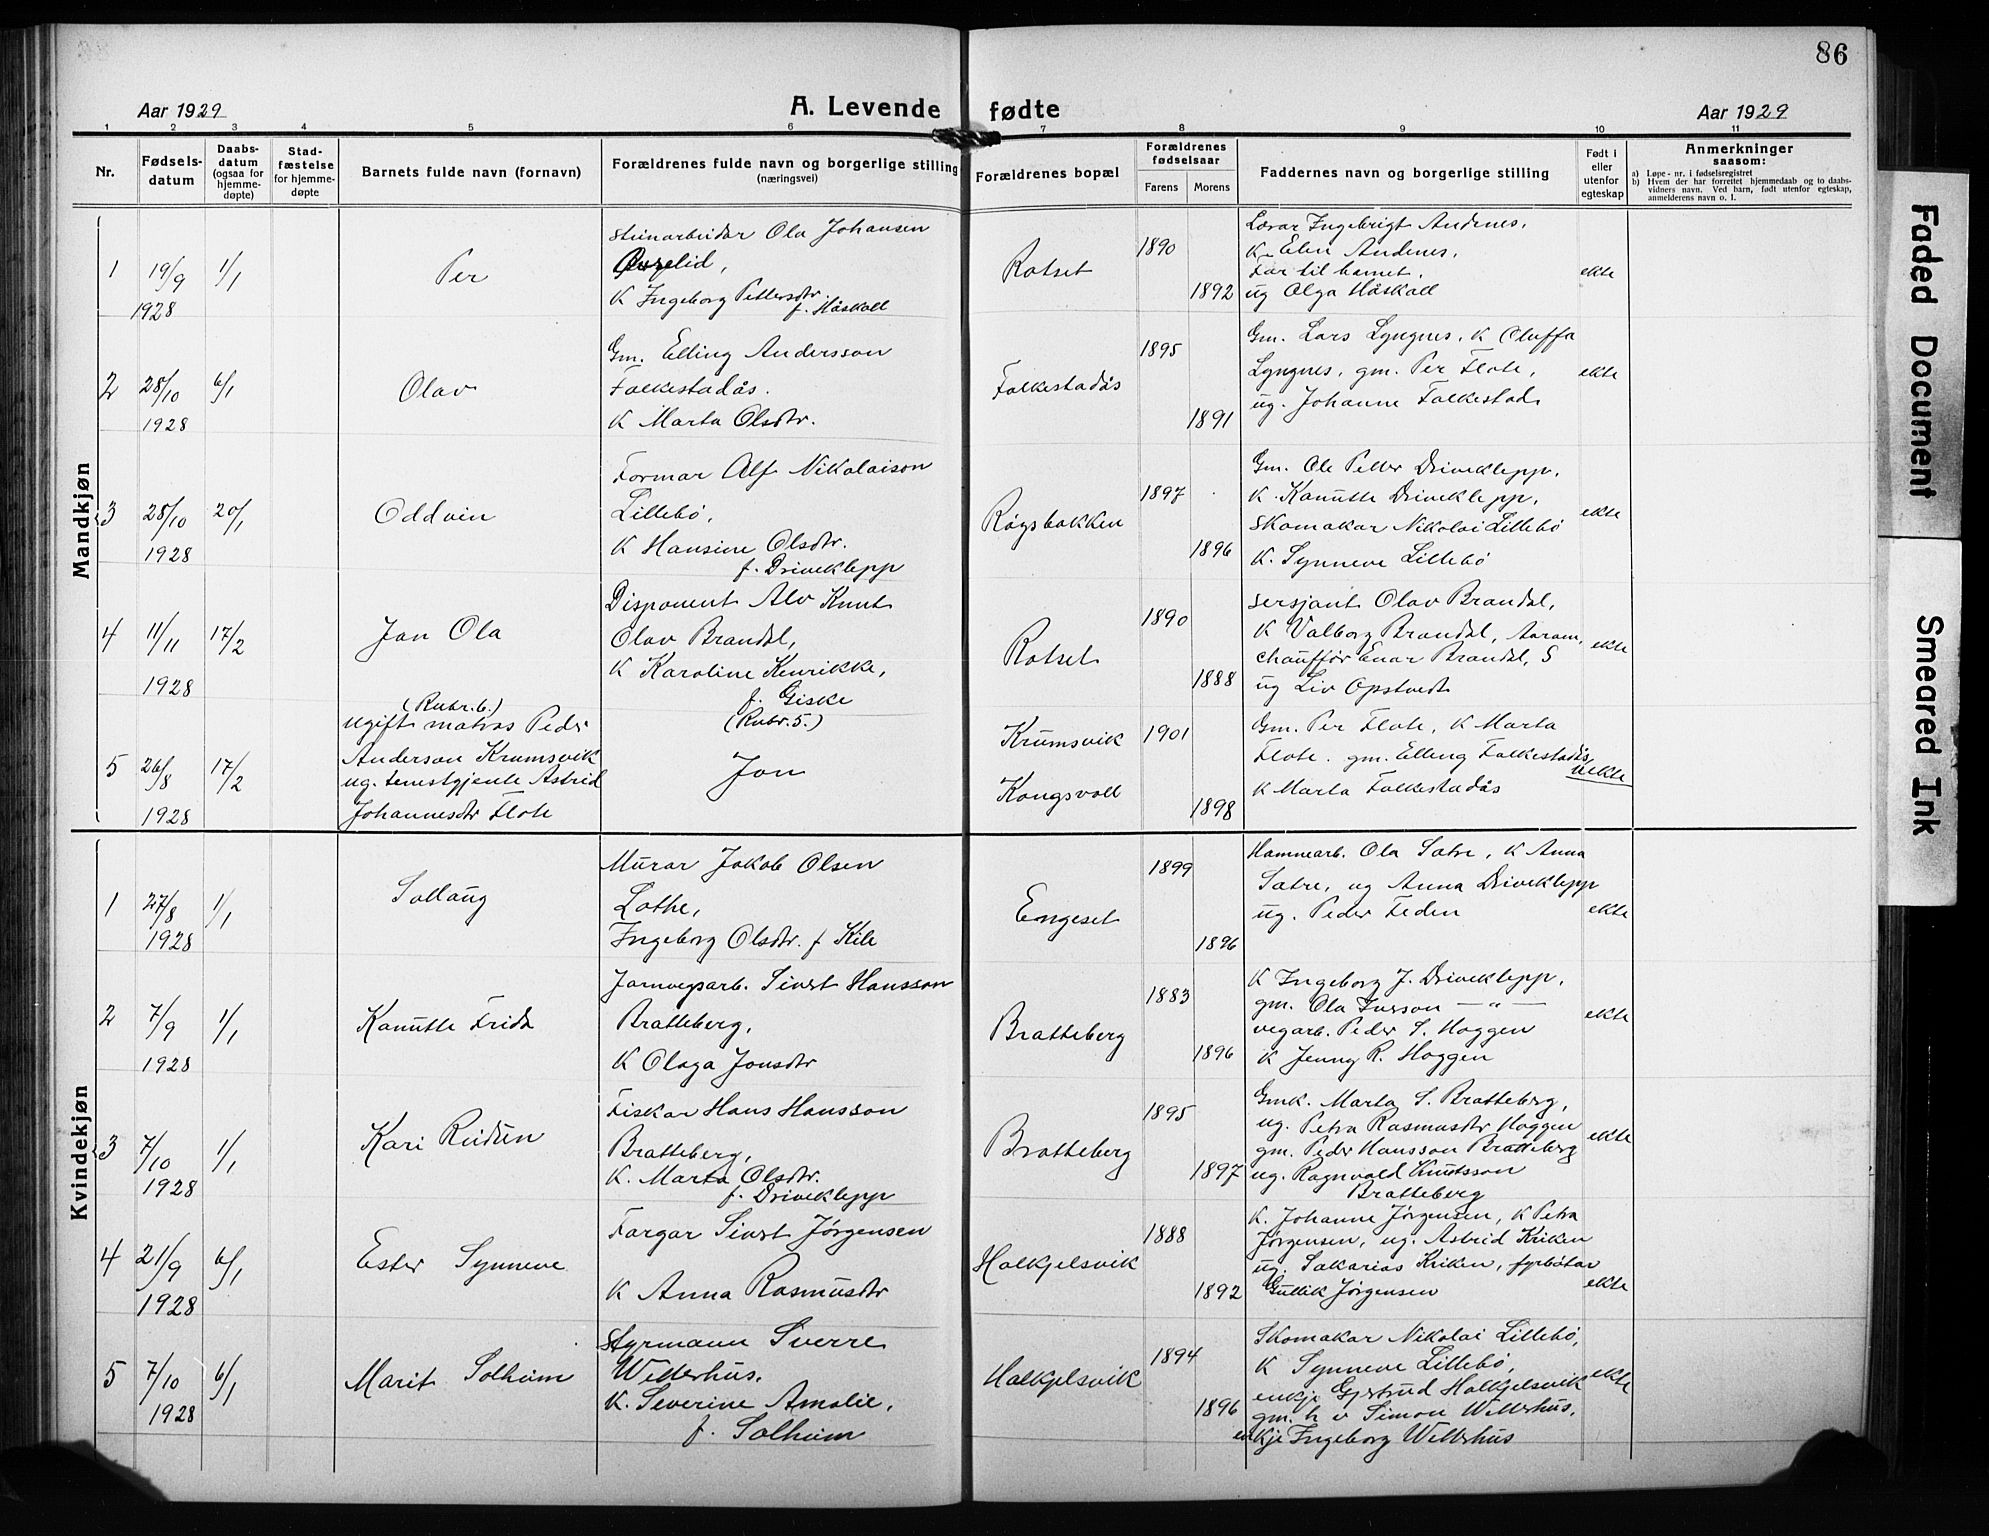 86
Aar 1929
A. Levende fødte
Aar 1929
1 2 3 4 5 6 7 8 9 10 11
Nr.
Fødsels-
datum
Daabs-
datum
(ogsaa for
hjemme-
døpte)
Stad-
fæstelse
for hjemme-
døpte
Barnets fulde navn (fornavn)
Forældrenes fulde navn og borgerlige stilling
(næringsvei)
Forældrenes bopæl
Forældrenes
fødselsaar
Farens
Morens
Faddernes navn og borgerlige stilling
Født i
eller
utenfor
egteskap
Anmerkninger
saasom:
a) Løpe-nr. i fødselsregistret
b) Hvem der har forrettet hjemmedaab og to daabs-
vidners navn. Ved barn, født utenfor egteskap,
anmelderens navn o. l.
Mandkjøn
1
19/9
1928
1/1
Per
Steinarbeidar Ola Johansen
K Ingeborg Pettersdtr.
f. Håskoll
Rotset
1890
1892
Lærar Ingebrigt Andenes,
K Elen Andenes,
Far til barnet,
ug Olga Håskoll
ekte
2
28/10
1928
6/1
Olav
Gm. Elling Andersson
Folkestadås.
K Marta Olsdtr.
Folkestadås
1895
1891
Gm. Lars Lyngnes, K Oluffa
Lyngnes, gm. Per Flote,
ug. Johanne Folkestad
ekte
3
28/10
1928
20/1
Oddvin
Formar Alf Nikolaison
Lillebö,
K Hansine Olsdtr.
f. Driveklepp
Røgsbakken
1897
1896
Gm. Ole Petter Driveklepp,
K. Kanutte Driveklepp,
Skomakar Nikolai Lillebö
K. Synneve Lillebö
ekte
4
11/11
1928
17/2
Jan Ola
Disponent Alv Knut
Olav Brandal,
K Karoline Henrikke,
f. Giske
Rotset
1890
1888
Sersjant Olav Brandal,
K Valborg Brandal, Aaram,
Chauffør Einar Brandal, S
ug Liv Opstvedt
ekte
5
26/8
1928
17/2
(Rubr. 6.)
ugift matros Peder
Anderson Krumsvik
ug. tenestgjente Astrid
Johannesdtr Flote
(Rubr. 5.)
Jon
Krumsvik
Kongsvoll
1901
1898
Gm. Per Flote, K Marta
Flote. gm. Elling Folkestadås,
K Marta Folkestadås
uekte
Kvindekjøn
1
27/8
1928
1/1
Sollaug
Murar Jakob Olsen
Lothe,
Ingeborg Olsdtr. f Kile
Engeset
1899
1896
Hamnearb. Ola Sætre, K Anna
Sætre, ug Anna Driveklepp
ug. Peder Feden
ekte
2
7/9
1928
1/1
Kanutte Frida
Jarnvegsarb. Sivert Hansson
Bratteberg,
K Olaga Jonsdtr
Bratteberg
1883
1896
K Ingeborg J. Driveklepp,
gm. Ola Iversson — " —
vegarb. Peder S. Hoggen
K Jenny R. Hoggen
ekte
3
7/10
1928
1/1
Kari Reidun
Fiskar Hans Hansson
Bratteberg,
K. Marta Olsdtr.
f. Driveklepp
Bratteberg
1895
1897
Gmk. Marta S. Bratteberg,
ug. Petra Rasmusdtr Hoggen
gm. Peder Hansson Bratteberg
ug. Ragnvald Knutsson
Bratteberg
ekte
4
21/9
1928
6/1
Ester Synneve
Fargar Sivert Jørgensen
K Anna Rasmusdtr
Halkjelsvik
1888
1892
K. Johanne Jørgensen, K Petra
Jørgensen, ug. Astrid Kriken
ug. Sakarias Kriken, fyrbøtar
Gullik Jørgensen
ekte
5
7/10
1928
6/1
Marit Solheim
Styrmann Sverre
Wetterhus,
K. Severine Amalie,
f. Solheim
Halkjelsvik
1894
1896
Skomakar Nikolai Lillebö,
K Synneve Lillebö,
enkje Gjertrud Halkjelsvik
gm. h v Simon Wetterhus,
enkje Ingeborg Wetterhus
ekte
Faded Document
Smeared Ink